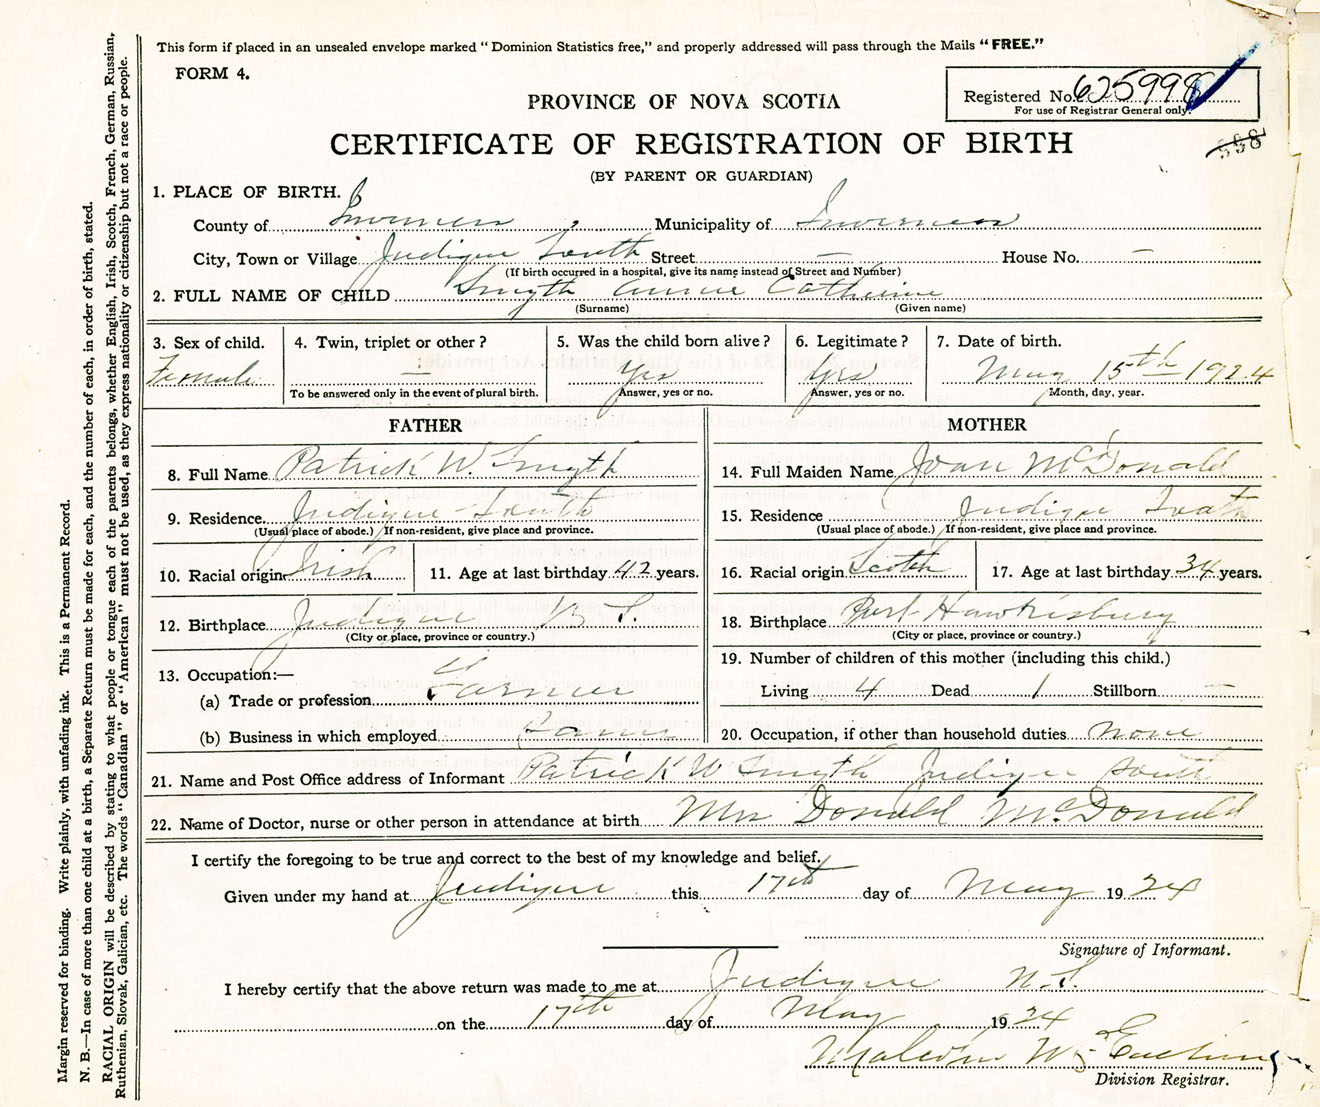 This form if placed in an unsealed envelope marked "Dominion Statistics free," and properly addressed will pass through the Mails "FREE."
FORM 4.
Registered No. 625998
For use of Registrar General only.
998
PROVINCE OF NOVA SCOTIA
CERTIFICATE OF REGISTRATION OF BIRTH
(BY PARENT OR GUARDIAN)
1. PLACE OF BIRTH.
County of Inverness Municipality of Inverness
City, Town or Village Judique South Street — House No. —
(If birth occurred in a hospital, give its name instead of Street and Number)
2. FULL NAME OF CHILD Smyth Annie Catherine
(Surname) (Given name)
3. Sex of child. 4. Twin, triplet or other? 5. Was the child born alive? 6. Legitimate? 7. Date of birth.
Female — Yes Yes May 15th 1924
To be answered only in the event of plural birth. Answer, yes or no. Answer, yes or no. Month, day, year.
FATHER
8. Full Name Patrick W. Smyth
9. Residence Judique South
(Usual place of abode.) If non-resident, give place and province.
10. Racial origin Irish 11. Age at last birthday 42 years.
12. Birthplace Judique N.S.
(City or place, province or country.)
13. Occupation:—
(a) Trade or profession Farmer
(b) Business in which employed Farmer
MOTHER
14. Full Maiden Name Joan McDonald
15. Residence Judique South
(Usual place of abode.) If non-resident, give place and province.
16. Racial origin Scotch 17. Age at last birthday 34 years.
18. Birthplace Port Hawkesbury
(City or place, province or country.)
19. Number of children of this mother (including this child.)
Living 4 Dead 1 Stillborn —
20. Occupation, if other than household duties none
21. Name and Post Office address of Informant Patrick W Smyth Judique South
22. Name of Doctor, nurse or other person in attendance at birth Mrs Donald McDonald
I certify the foregoing to be true and correct to the best of my knowledge and belief.
Given under my hand at Judique this 17th day of May 1924
Signature of Informant.
I hereby certify that the above return was made to me at Judique N.S.
on the 17th day of May 1924
Malcolm W.
Division Registrar.
Margin reserved for binding. Write plainly, with unfading ink. This is a Permanent Record.
N. B.—In case of more than one child at a birth, a Separate Return must be made for each, and the number of each, in order of birth, stated.
RACIAL ORIGIN will be described by stating to what people or tongue each of the parents belongs, whether English, Irish, Scotch, French, German, Russian,
Ruthenian, Slovak, Galician, etc. The words "Canadian" or "American" must not be used, as they express nationality or citizenship but not a race or people.